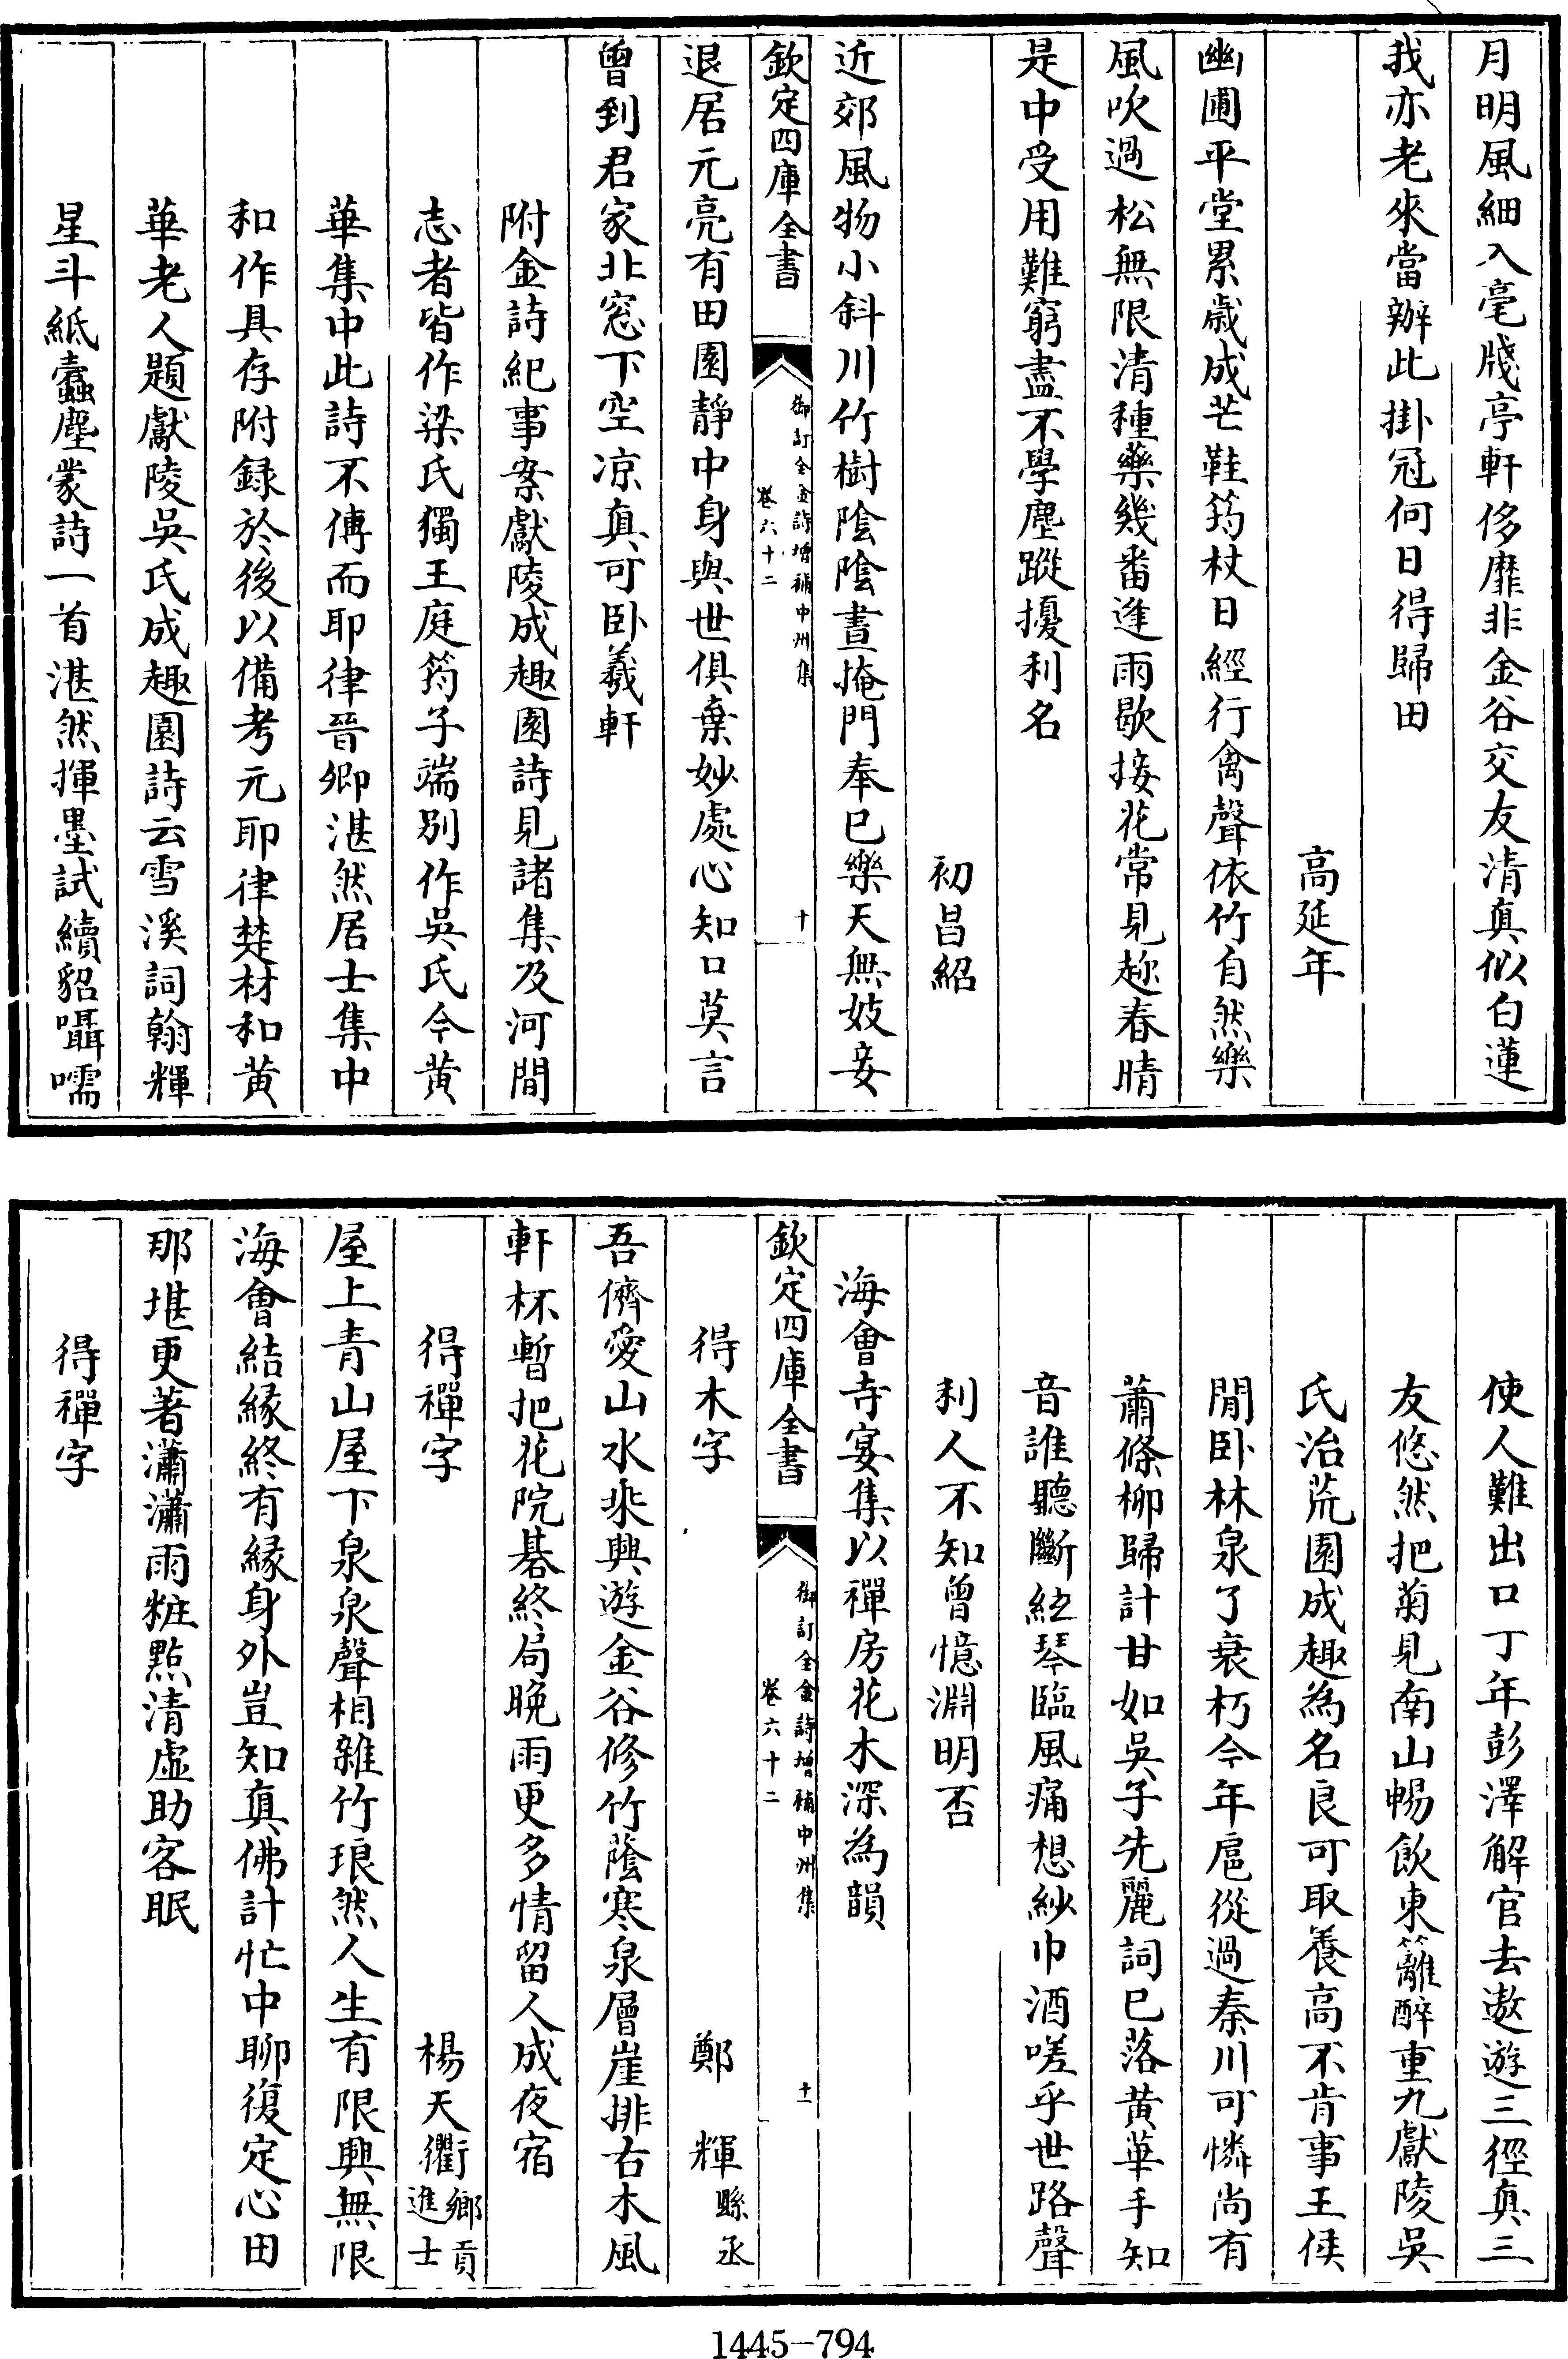 月明風細入亳牋亭軒侈靡非金谷交友清真似白蓮
我亦老來當辦此掛冠何日得歸田
高延年
幽圃平堂累歲成芒鞋筇杖日經行禽聲依竹自然樂
風吹過松無限清種藥幾番逢雨歇接花常見趂春晴
是中受用難窮盡不學塵蹤擾利名
初昌紹
近郊風物小斜川竹樹陰陰晝掩門奉已樂天無妓妾
欽定四庫全書
御訂全金詩增補中州集
卷六十二
十
退居元亮有田園靜中身與世俱棄妙處心知口莫言
曾到君家北窓下空凉真可卧羲軒
附金詩紀事案獻陵成趣園詩見諸集及河間
志者皆作梁氏獨王庭筠子端别作吳氏今黄
華集中此詩不傳而耶律晉卿湛然居士集中
和作具存附録於後以備考元耶律楚材和黄
華老人題獻陵吳氏成趣園詩云雪溪詞翰輝
星斗紙蠹塵蒙詩一首湛然揮墨試續貂囁嚅
使人難出口丁年彭澤解官去遨遊三徑真三
友悠然把菊見南山暢飲東籬醉重九獻陵吳
氏治荒園成趣為名良可取養高不肯事王侯
閒卧林泉了衰朽今年扈從過秦川可憐尚有
蕭條柳歸計甘如吳子先麗詞已落黄華手知
音誰聽斷絃琴臨風痛想紗巾酒嗟乎世路聲
利人不知曾憶淵明否
海會寺宴集以禪房花木深為韻
欽定四庫全書
御訂全金詩增補中州集
卷六十二
十一
得木字 鄭輝縣丞
吾儕愛山水乘興遊金谷修竹蔭寒泉層崖排右木風
軒杯暫把花院碁終局晚雨更多情留人成夜宿
得禪字 楊天衢鄉貢進士
屋上青山屋下泉泉聲相雜竹琅然人生有限興無限
海會結緣終有緣身外豈知真佛計忙中聊復定心田
那堪更著瀟瀟雨粧點清虛助客眠
得禪字
1445-794